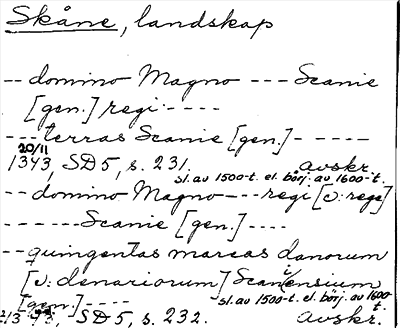 Skåne, landskap
-- domino Magno --- Scanie
[gen.] regi ----
--- terras Scanie [gen.] ------
20/11
1343, SD 5, s. 231. avskr.
sl. av 1500-t. el. börj. av 1600-t.
-- domino Magno --- regi [ɔ: rege]
------ Scanie [gen.] ----
-- quingentas marcas danorum
[ɔ: denariorum] Scaniensium
[gen.] ---- sl. av 1500-t. el. börj. av 1600-t.
SD 5, s. 232. avskr.